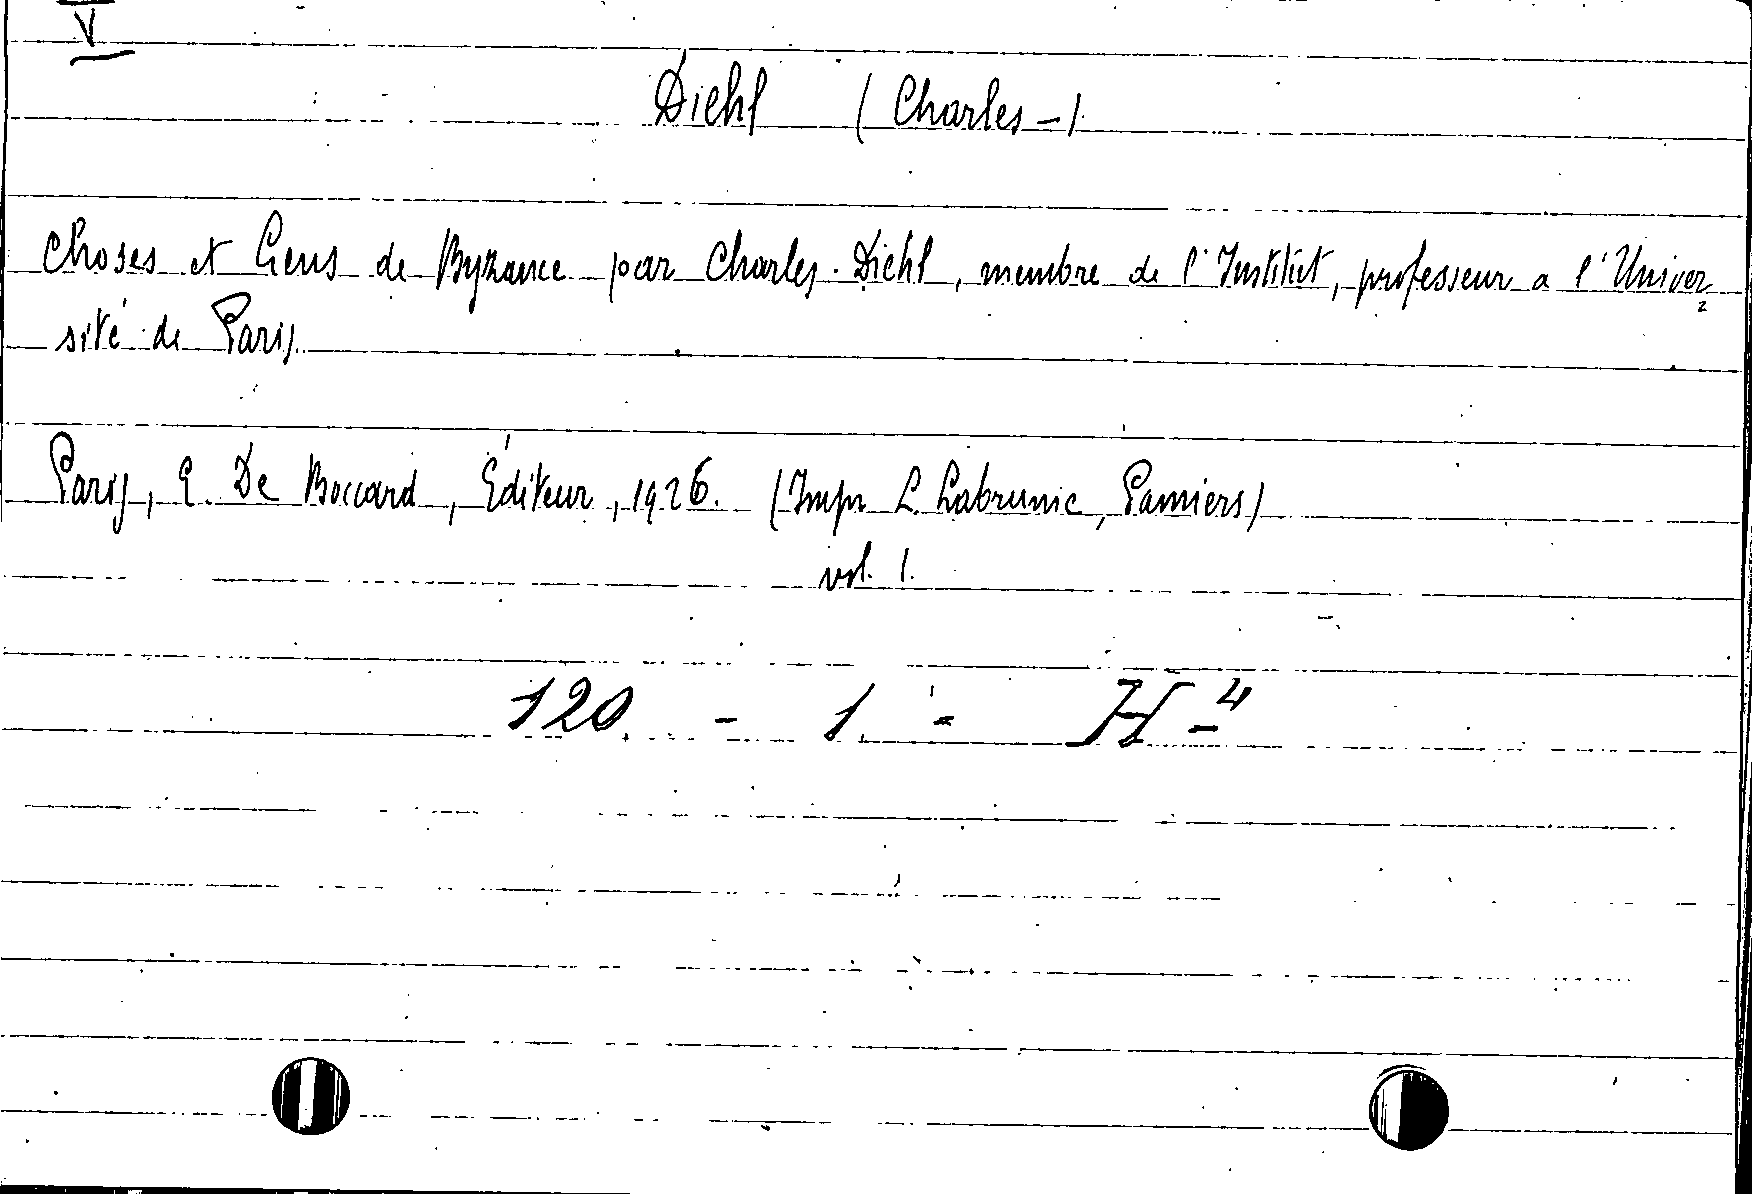 V
Diehl (Charles-)
Choses et Gens de Byzance par Charles. Diehl, membre de l'Institut, professeur a l'Univer
sité de Paris.
Paris, E. De Boccard, Éditeur, 1926. (Impr L. Labrunie, Pamiers)
vol. 1.
120 - 1. - H-4